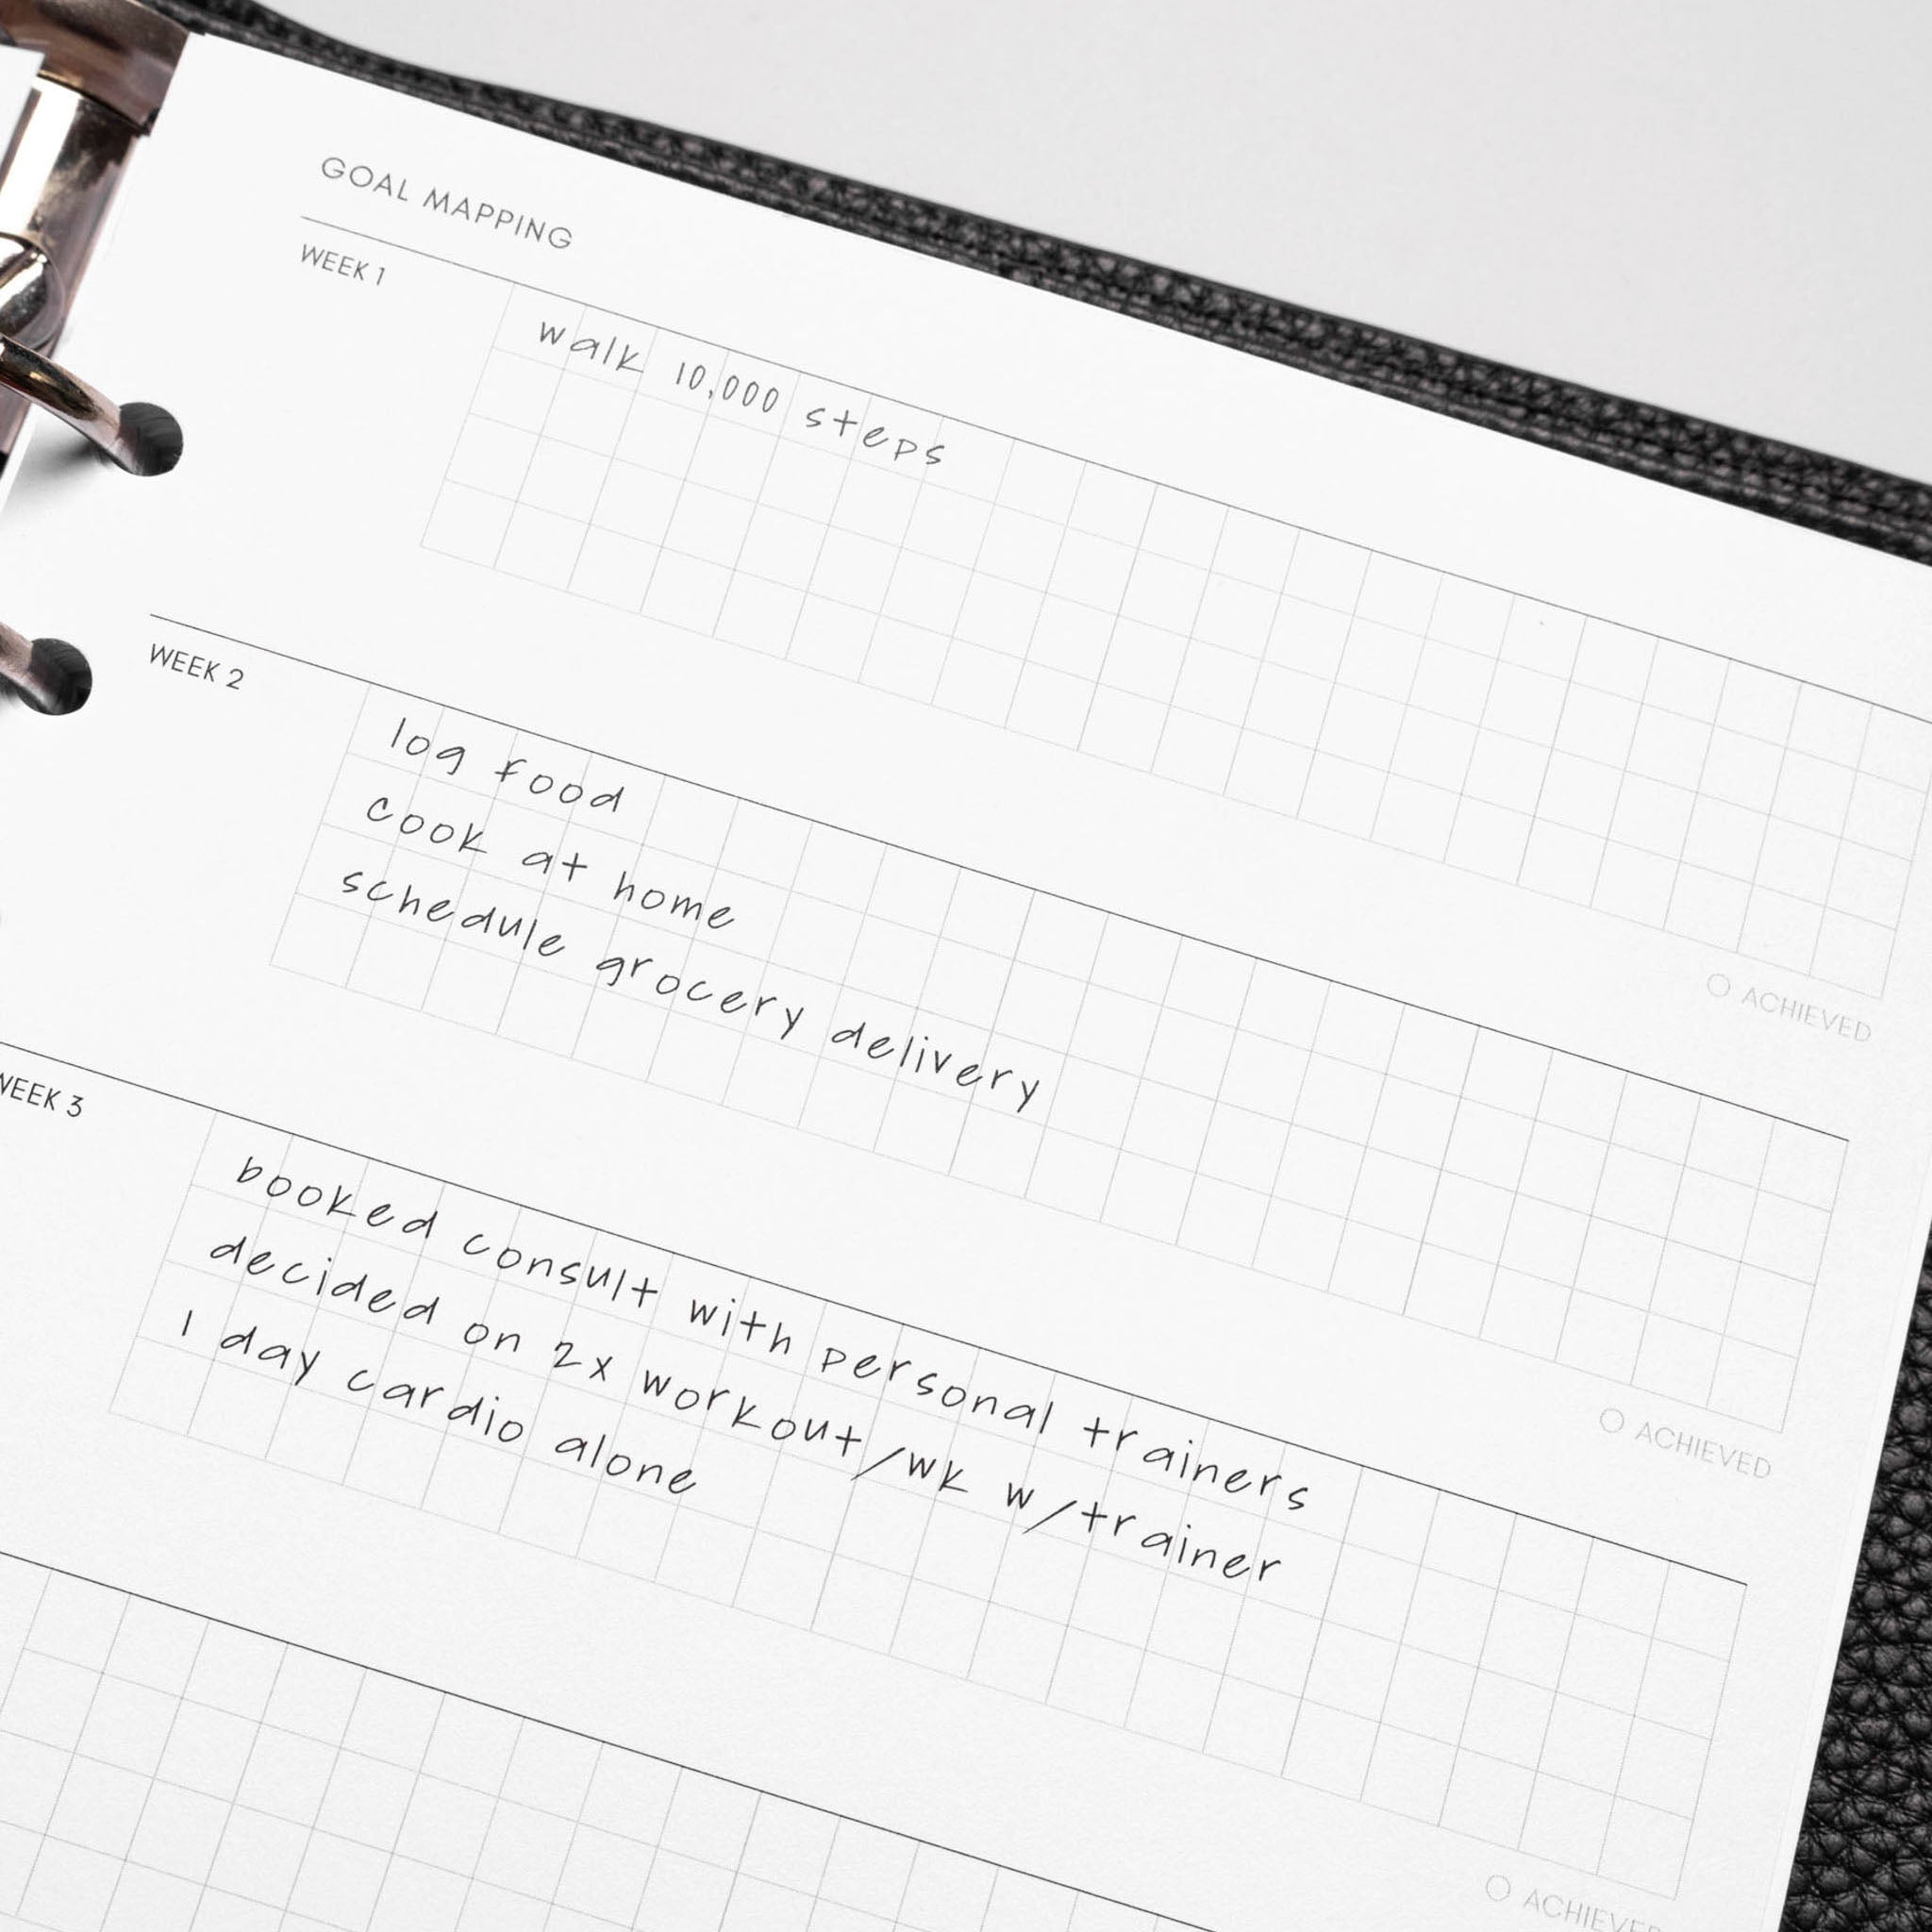 GOAL MAPPING
WEEK 1
walk 10,000 steps
ACHIEVED
WEEK 2
log food
cook at home
schedule grocery delivery
ACHIEVED
WEEK 3
booked consult with personal trainers
decided on 2x workout/wk w/trainer
1 day cardio alone
ACHIEVED